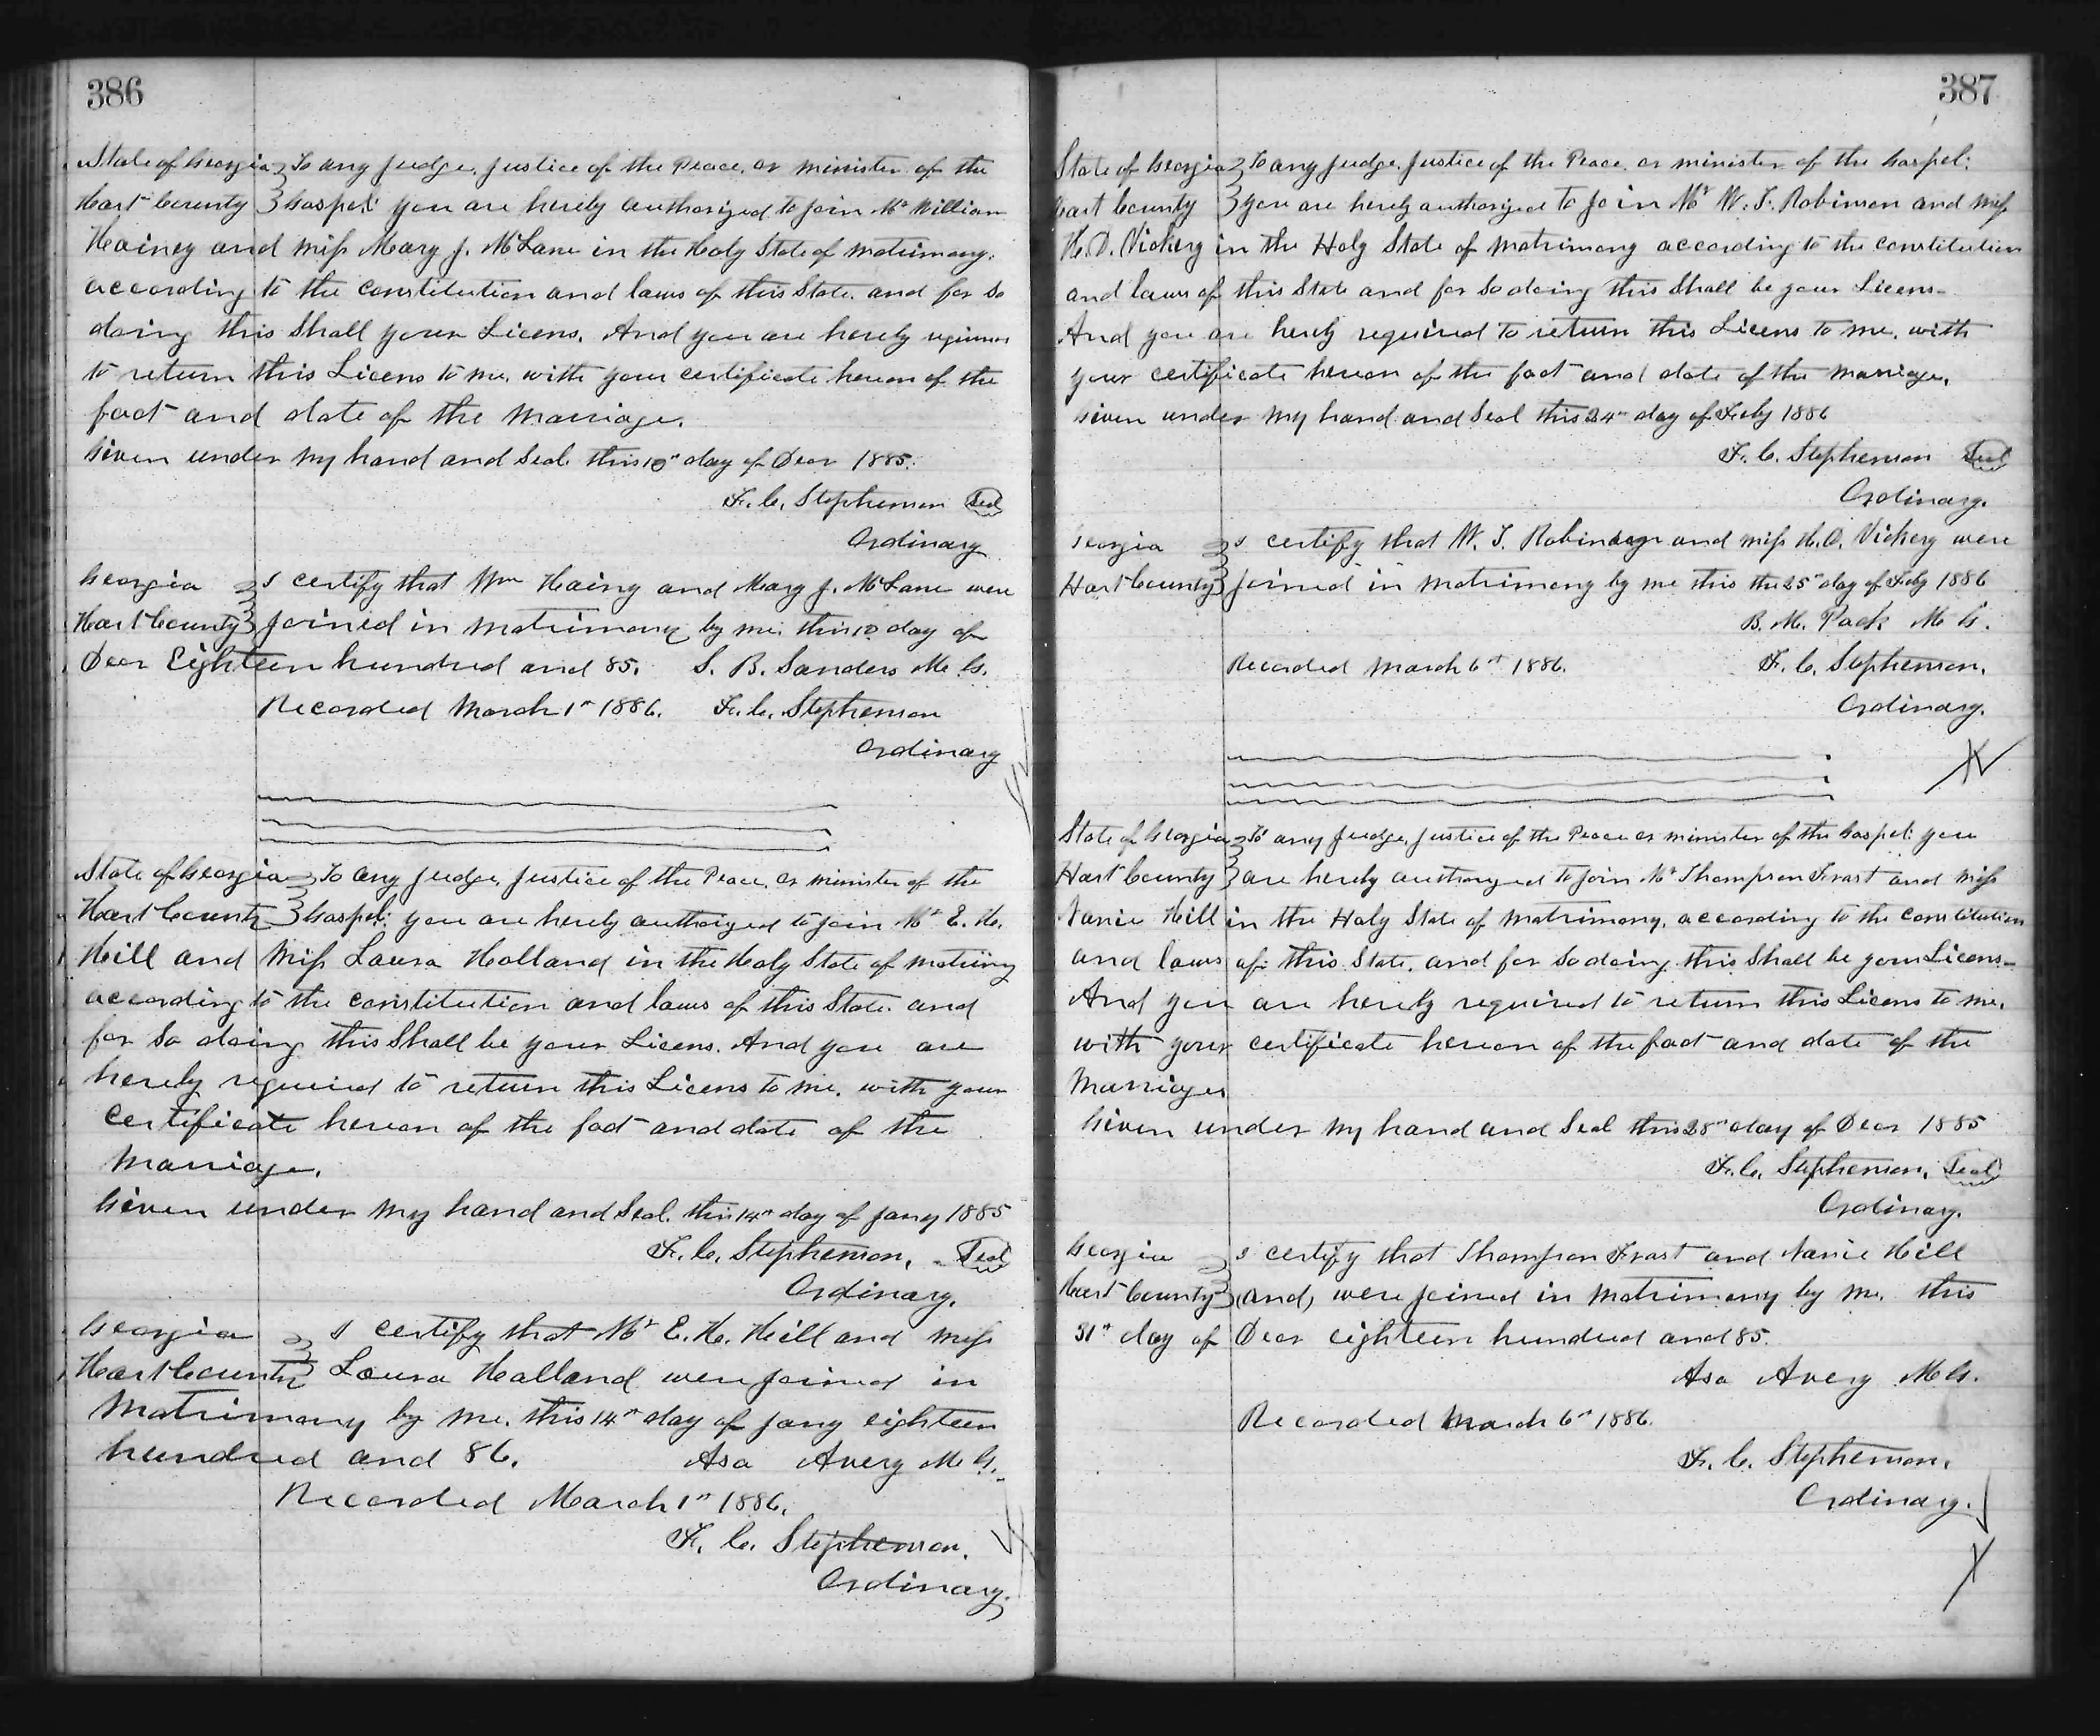 386
State of Georgia To any Judge, Justice of the Peace, or minister of the
Hart County Gospel you are hereby authorized to join Mr William
Hainey and miss Mary J. McLane in the Holy State of matrimony.
according to the constitution and laws of this State. and for so
doing this Shall your Licens. And you are hereby
to return this Licens to me, with your certificate hereon of the
fact and date of the marriage.
Given under my hand and Seal this 10th day of Decr 1885.
F. C. Stephenson Seal
Ordinary
Georgia I certify that Wm Hainy and Mary J. McLane were
Hart County joined in matrimony by me. this 10 day of
Decr Eighteen hundred and 85. S. B. Sanders M. G.
Recorded March 1st 1886. F. C. Stephenson
Ordinary
State of Georgia To any Judge, Justice of the Peace, or minister of the
Hart County Gospel: you are hereby authorized to join Mr E. H.
Hill and Miss Laura Holland in the Holy State of
according to the constitution and laws of this State. and
for so doing this Shall be your Licens. And you are
hereby required to return this Licens to me. with your
certificate hereon of the fact and date of the
marriage.
Given under my hand and Seal. this 14th day of Jany 1885
F. C. Stephenson, Seal
Ordinary.
Georgia I certify that Mr E. H. Hill and miss
Hart County Laura Holland were joined in
Matrimony by me. this 14th day of Jany eighteen
hundred and 86. Asa Avery M. G.
Recorded March 1st 1886.
F. C. Stephenson.
Ordinary.
387
State of Georgia To any Judge, Justice of the Peace, or minister of the Gospel:
Hart County you are hereby authorized to join Mr W. T. Robinson and miss
H. O. Vickery in the Holy State of matrimony according to the constitution
and laws of this State and for so doing this Shall be your Licens-
And you are hereby required to return this Licens to me, with
your certificate hereon of the fact and date of the marriage.
Given under my hand and Seal this 24th day of Feby 1886
F. C. Stephenson Seal
Ordinary.
Georgia I certify that W. T. Robinson and miss H. O. Vickery were
Hart County joined in matrimony by me this the 25th day of Feby 1886
B. M. Pack M G.
Recorded March 6th 1886. F. C. Stephenson.
Ordinary.
State of Georgia To any Judge, Justice of the Peace or minister of the Gospel: you
Hart County are hereby authorized to join Mr Thompson Frast and miss
Nanie Hill in the Holy State of matrimony, according to the constitution
and laws of this State. and for so doing this Shall be your Licens-
And you are hereby required to return this Licens to me.
with your certificate hereon of the fact and date of the
Marriage
Given under my hand and Seal this 28th day of Decr 1885
F. C. Stephenson, Seal
Ordinary.
Georgia I certify that Thompson Frast and Nanie Hill
Hart County (and) were joined in matrimony by me. this
31st day of Decr eighteen hundred and 85.
Asa Avery M G.
Recorded March 6th 1886.
F. C. Stephenson.
Ordinary.